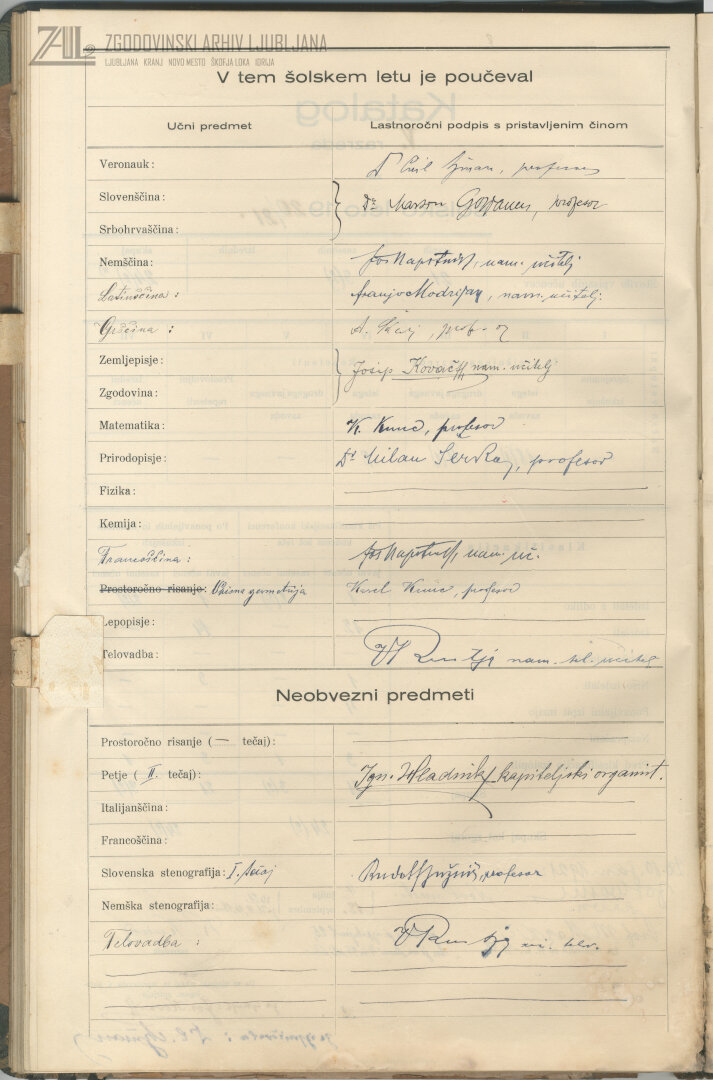 ZAL
ZGODOVINSKI ARHIV LJUBLJANA
LJUBLJANA KRANJ NOVO MESTO ŠKOFJA LOKA IDRIJA
V tem šolskem letu je poučeval
Učni predmet
Lastnoročni podpis s pristavljenim činom
Veronauk: Dr profesor
Slovenščina:
Srbohrvaščina:
Dr. profesor
Nemščina: nam. učitelj
Latinščina: Franjo Modrijan, nam. učitelj.
Grščina: A. prof.
Zemljepisje:
Zgodovina:
Josip Kovačič nam. učitelj
Matematika: K. Kunc, profesor
Prirodopisje: Dr Milan Šerko, profesor
Fizika:
Kemija:
Francoščina: nam. uč.
Prostoročno risanje: Opisna geometrija Karel Kunc, profesor
Lepopisje:
Telovadba: nam. tel. učitelj
Neobvezni predmeti
Prostoročno risanje (— tečaj):
Petje (II. tečaj): Ign. Hladnik, kapiteljski organist.
Italijanščina:
Francoščina:
Slovenska stenografija: I. tečaj Rudolf Južnič, profesor
Nemška stenografija:
Telovadba: